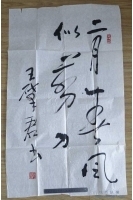 二月春风
似剪刀
王 君书